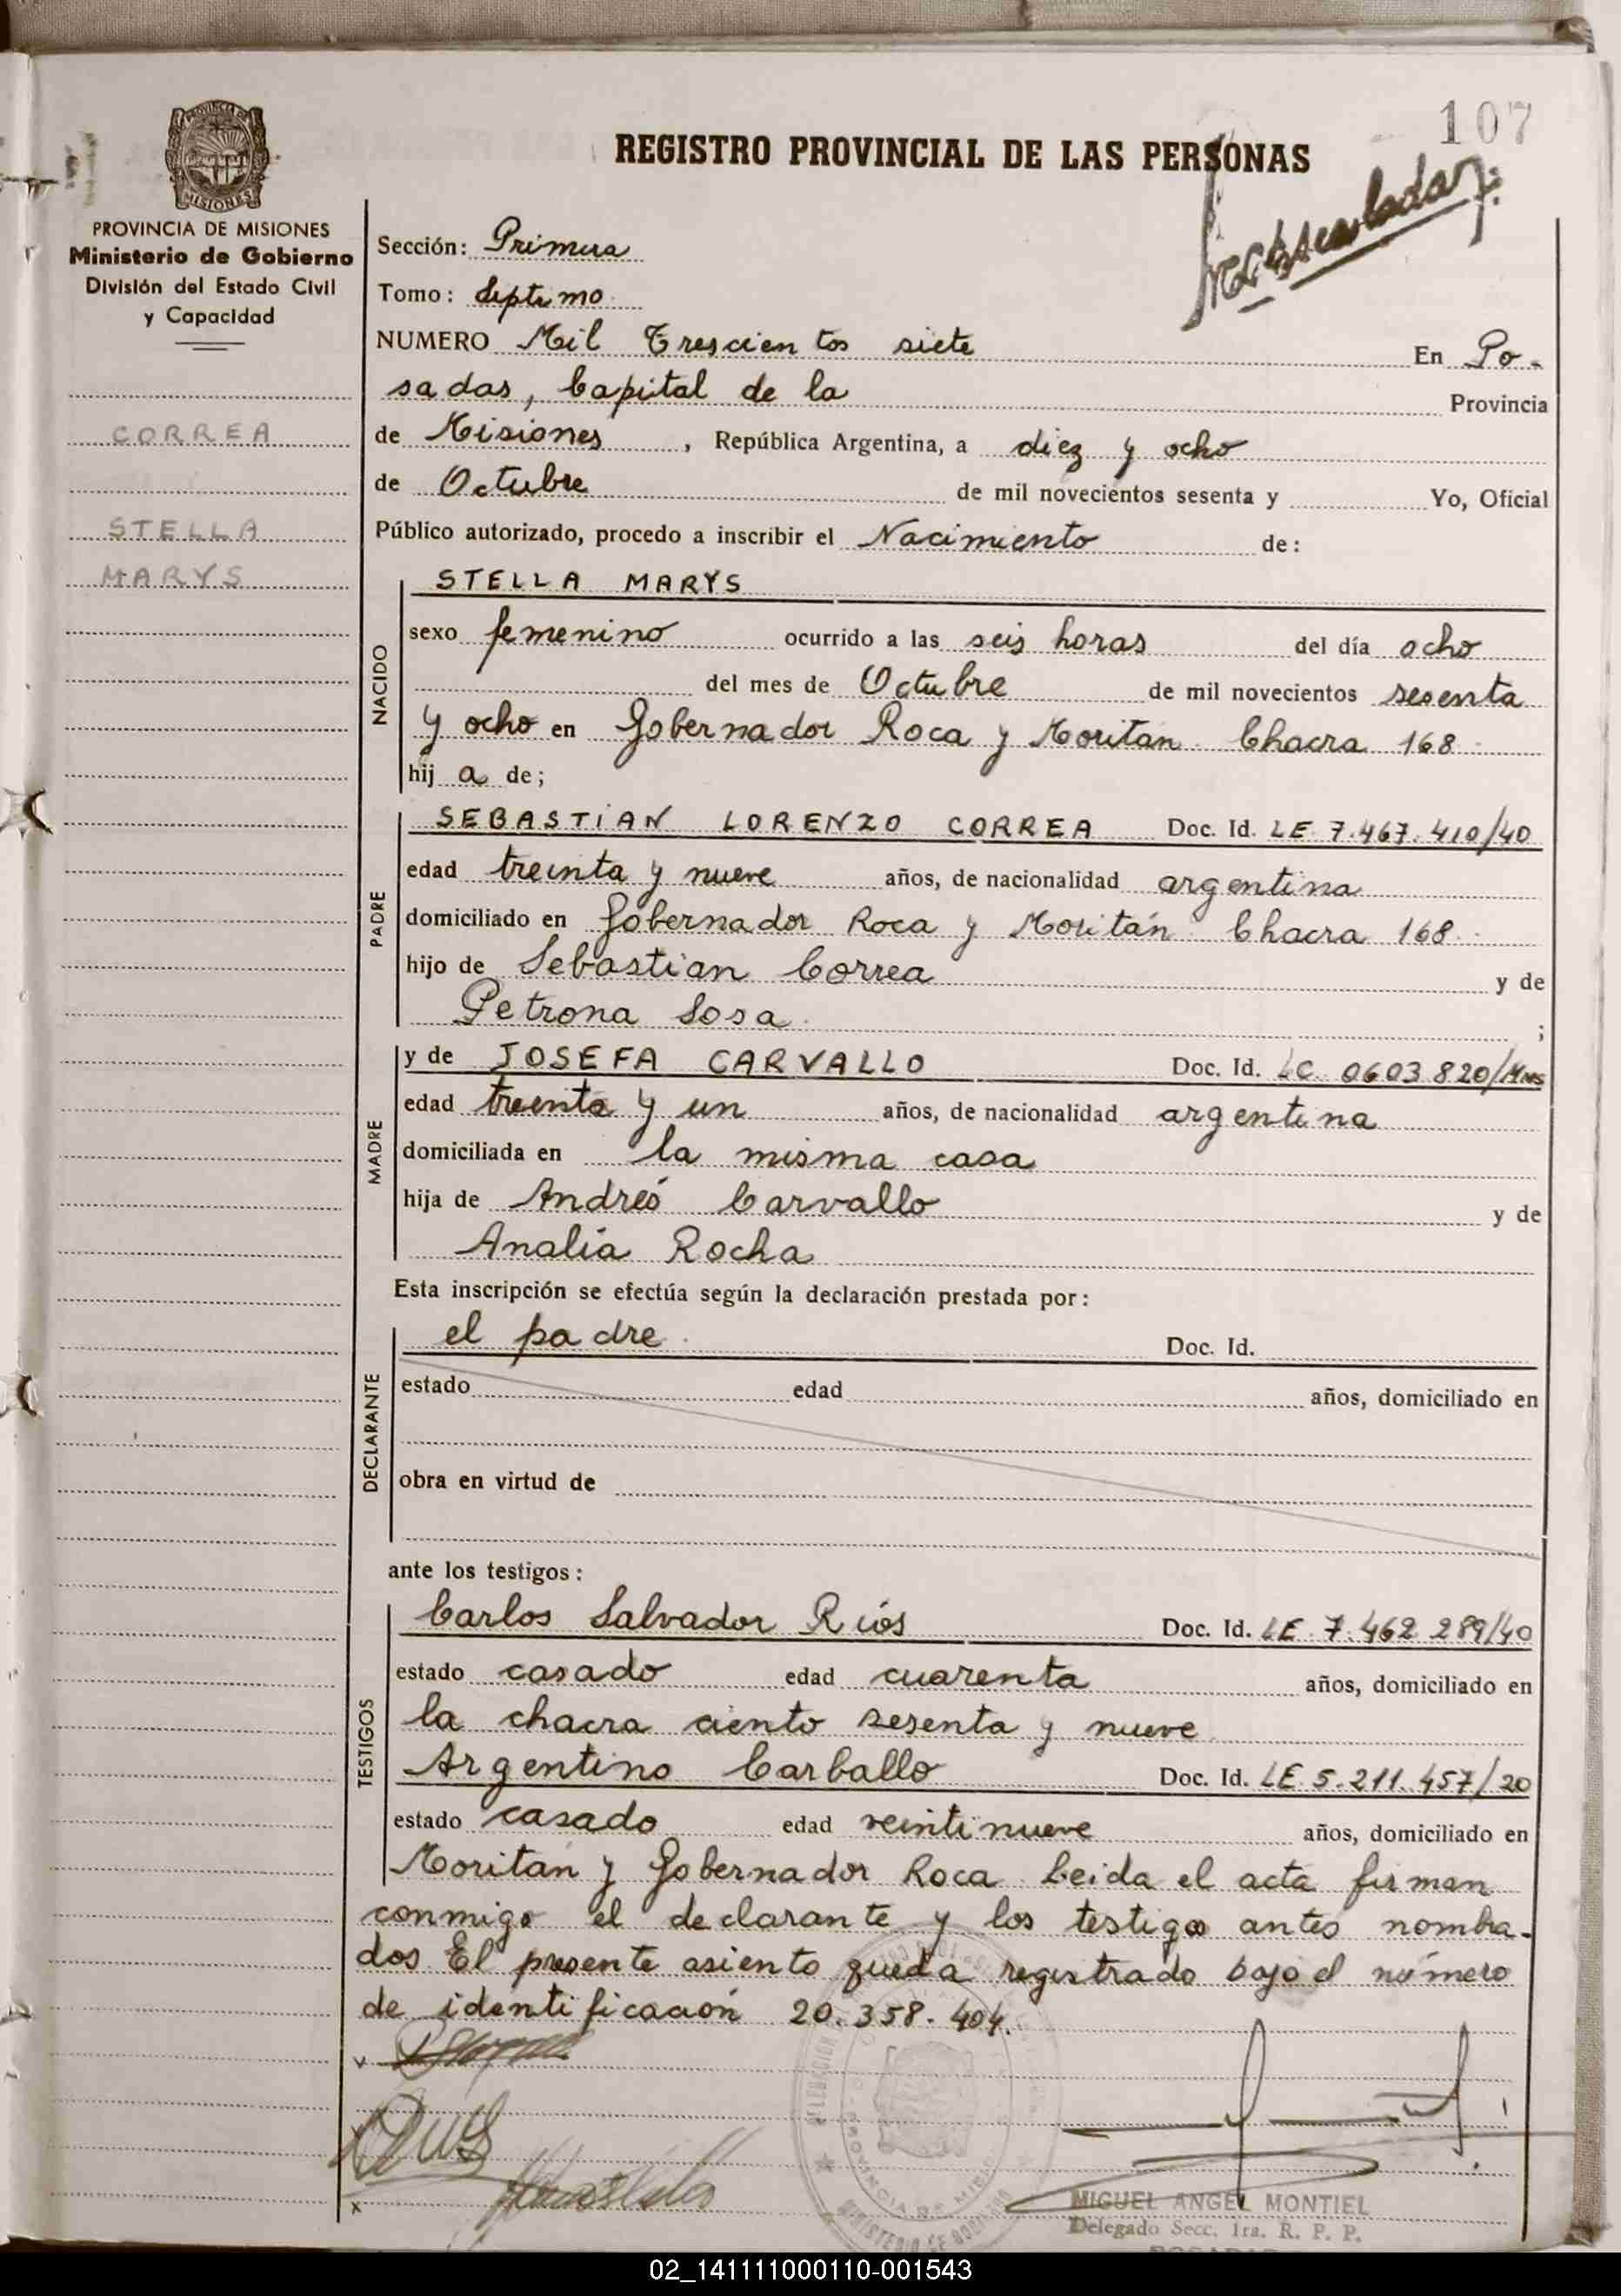 107
PROVINCIA DE
MISIONES
REGISTRO PROVINCIAL DE LAS PERSONAS
PROVINCIA DE MISIONES
Ministerio de Gobierno
División del Estado Civil
y Capacidad
CORREA
STELLA
MARYS
Sección: Primera
Tomo: Septimo
NUMERO Mil Trescientos siete En Po-
sadas, Capital de la Provincia
de Misiones, República Argentina, a diez y ocho
de Octubre de mil novecientos sesenta y Yo, Oficial
Público autorizado, procedo a inscribir el Nacimiento de:
NACIDO
STELLA MARYS
sexo femenino ocurrido a las seis horas del día ocho
del mes de Octubre de mil novecientos sesenta
y ocho en Gobernador Roca y Moritán Chacra 168
hij a de;
PADRE
SEBASTIAN LORENZO CORREA Doc. Id. LE 7.467.410/40
edad treinta y nueve años, de nacionalidad argentina
domiciliado en Gobernador Roca y Moritán Chacra 168
hijo de Sebastian Correa y de
Petrona Sosa ;
MADRE
y de JOSEFA CARVALLO Doc. Id. LC 0603.820/Mns
edad treinta y un años, de nacionalidad argentina
domiciliada en la misma casa
hija de Andrés Carvallo y de
Analia Rocha
Esta inscripción se efectúa según la declaración prestada por:
DECLARANTE
el padre Doc. Id.
estado edad años, domiciliado en
obra en virtud de
ante los testigos:
TESTIGOS
Carlos Salvador Ríos Doc. Id. LE 7.462.289/40
estado casado edad cuarenta años, domiciliado en
la chacra ciento sesenta y nueve
Argentino Carballo Doc. Id. LE 5.211.457/20
estado casado edad veintinueve años, domiciliado en
Moritan y Gobernador Roca Leida el acta firman
conmigo el declarante y los testigos antes nombra-
dos El presente asiento queda registrado bajo el número
de identificación 20.358.404.
MIGUEL ANGEL MONTIEL
Delegado Secc. 1ra. R. P. P.
02_141111000110-001543